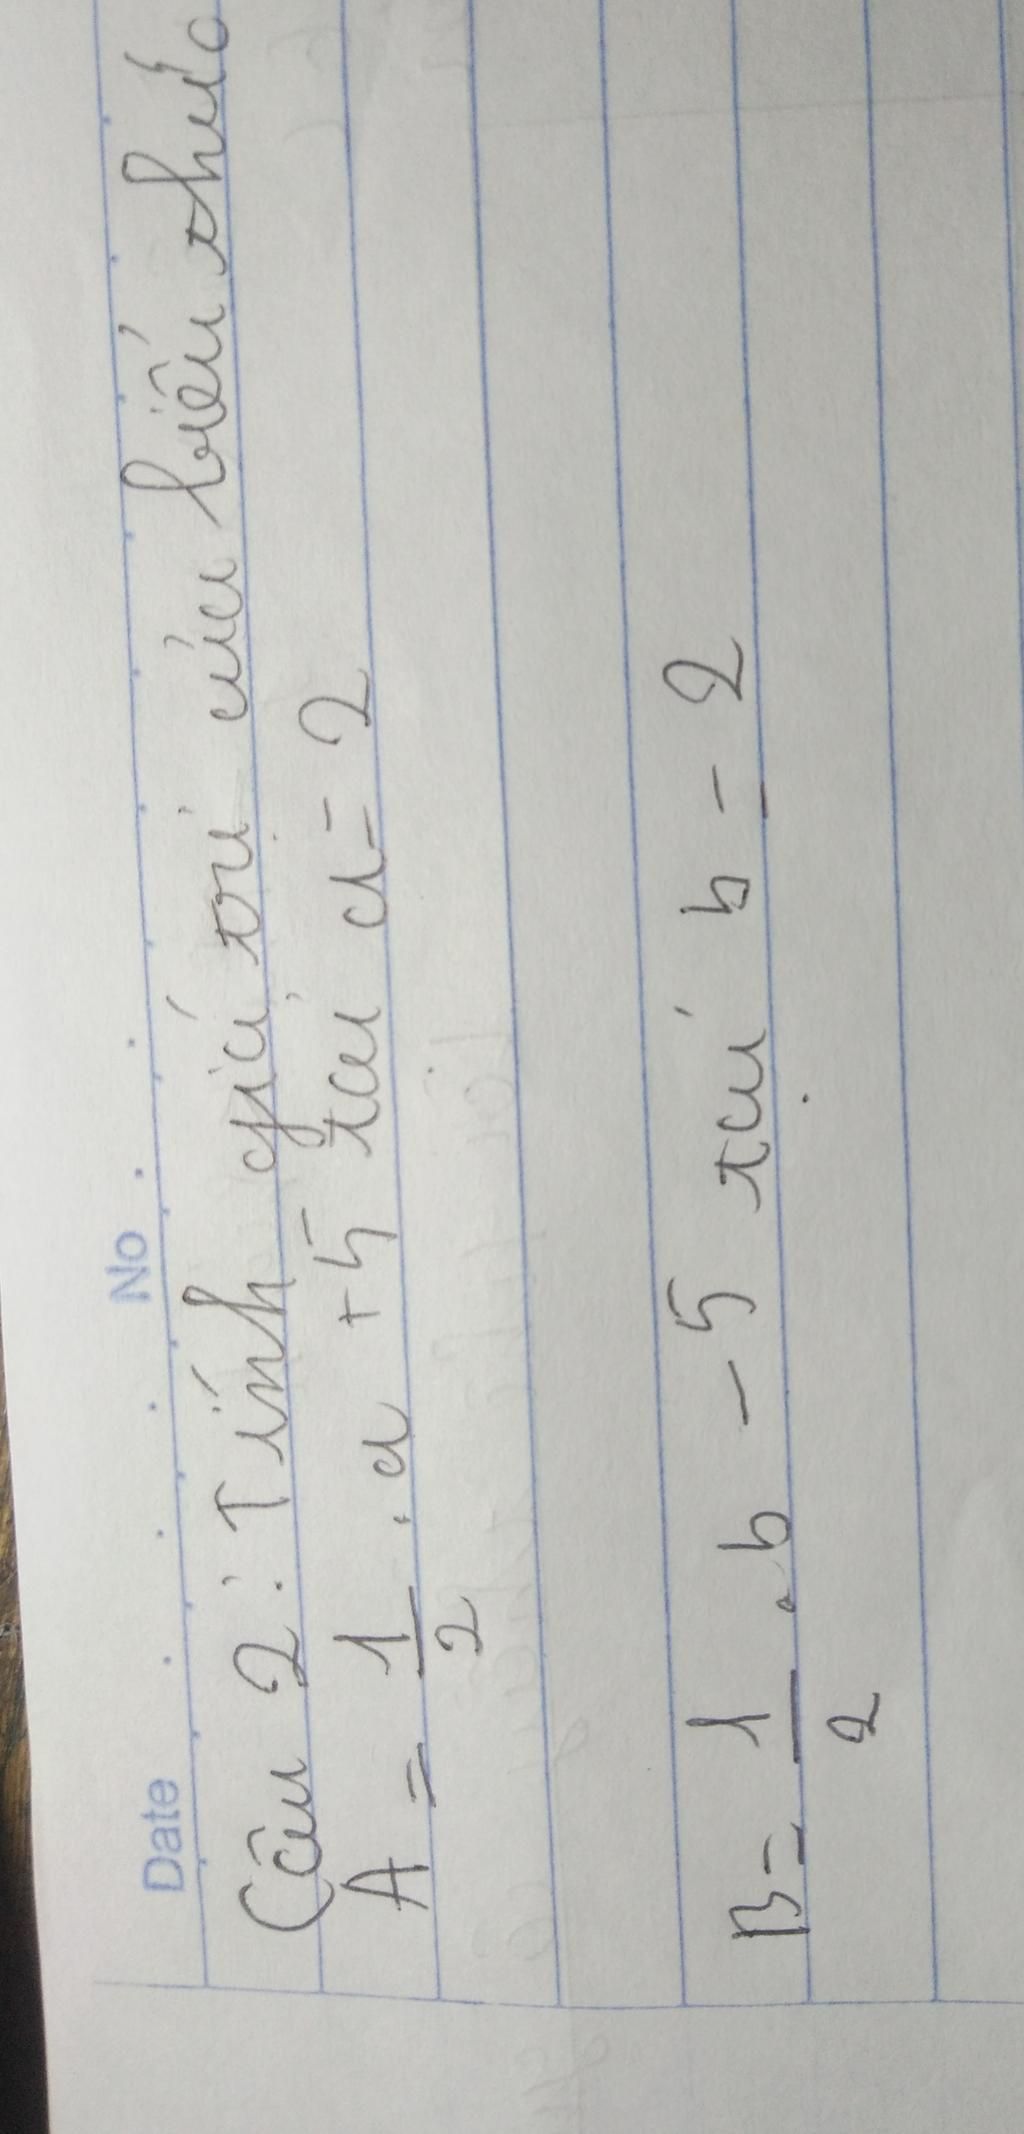 Date No
Câu 2: Tính giá trị của biểu thức
A = \frac{1}{2} . a + 5 tại a = 2
B = \frac{1}{2} . b - 5 tại b = 2